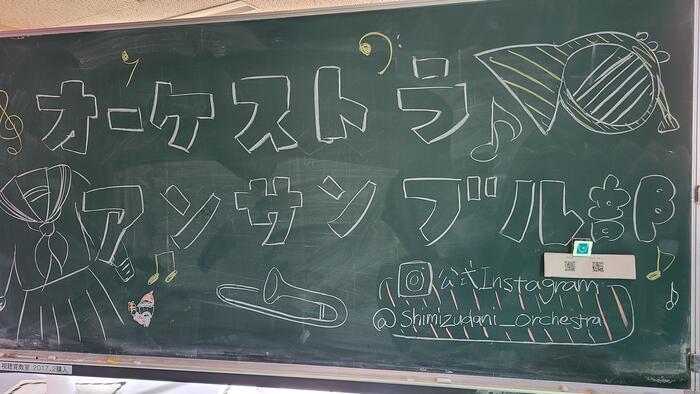 オーケストラ
アンサンブル部
公式Instagram
@Shimizudani_orchestra
視聴覚教室 2017.2購入